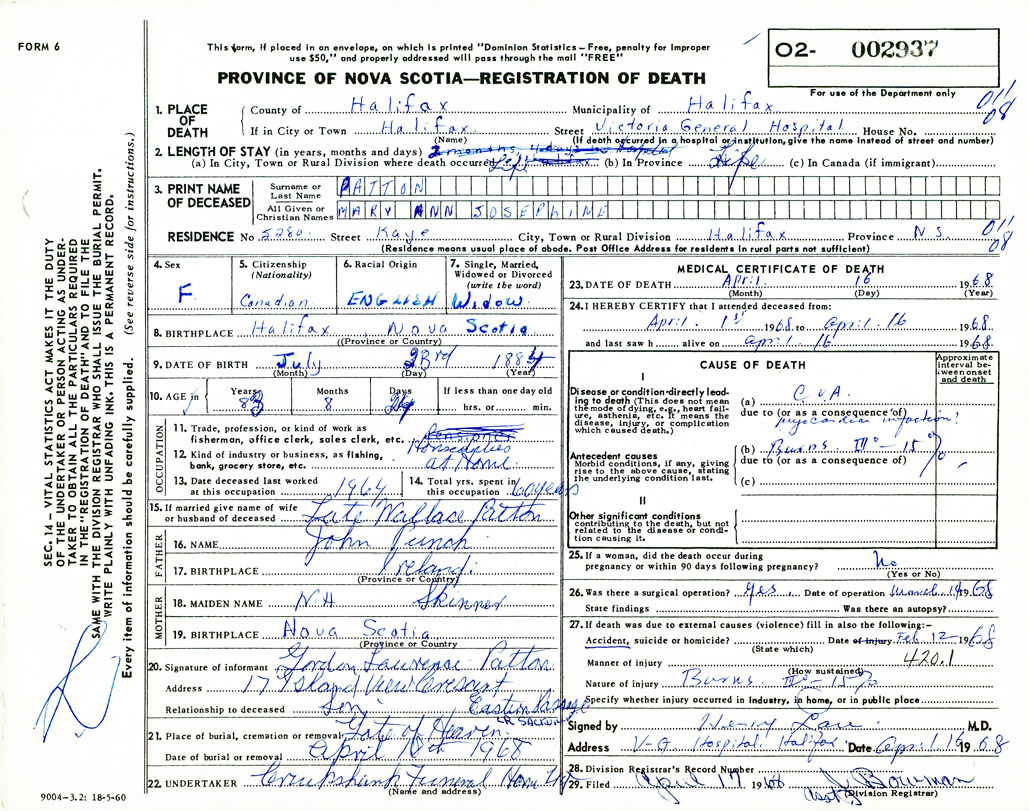 FORM 6
This form, if placed in an envelope, on which is printed "Dominion Statistics – Free, penalty for improper
use $50," and properly addressed will pass through the mail "FREE"
PROVINCE OF NOVA SCOTIA—REGISTRATION OF DEATH
O2- 002937
For use of the Department only
1. PLACE OF DEATH
County of Halifax Municipality of Halifax
If in City or Town Halifax Street Victoria General Hospital House No.
(Name) (If death occurred in a hospital or institution, give the name instead of street and number)
2. LENGTH OF STAY (in years, months and days)
(a) In City, Town or Rural Division where death occurred Life (b) In Province Life (c) In Canada (if immigrant)
3. PRINT NAME OF DECEASED
Surname or Last Name PATTON
All Given or Christian Names MARY ANN JOSEPHINE
RESIDENCE No 5280 Street Kaye City, Town or Rural Division Halifax Province N.S.
(Residence means usual place of abode. Post Office Address for residents in rural parts not sufficient)
011/08
011/08
4. Sex F
5. Citizenship (Nationality) Canadian
6. Racial Origin ENGLISH
7. Single, Married, Widowed or Divorced (write the word) Widow
8. BIRTHPLACE Halifax, Nova Scotia
(Province or Country)
9. DATE OF BIRTH July 23rd 1884
(Month) (Day) (Year)
10. AGE in Years 83 Months 8 Days 24 If less than one day old hrs. or min.
OCCUPATION
11. Trade, profession, or kind of work as
fisherman, office clerk, sales clerk, etc.
12. Kind of industry or business, as fishing,
bank, grocery store, etc. at Home
13. Date deceased last worked
at this occupation 1964
14. Total yrs. spent in
this occupation 60 years
15. If married give name of wife
or husband of deceased Late Wallace Patton
FATHER
16. NAME John Punch
17. BIRTHPLACE Ireland
(Province or Country)
MOTHER
18. MAIDEN NAME N.H Skinner
19. BIRTHPLACE Nova Scotia
(Province or Country
20. Signature of informant Gordon Lawrence Patton
Address 17 Island View Crescent
Relationship to deceased Son Eastern Passage
21. Place of burial, cremation or removal Gate of Heaven LR SACKVILLE
Date of burial or removal April 1968
22. UNDERTAKER Cruikshank Funeral Home
(Name and address)
9004–3.2: 18-5-60
MEDICAL CERTIFICATE OF DEATH
23. DATE OF DEATH April 16 1968
(Month) (Day) (Year)
24. I HEREBY CERTIFY that I attended deceased from:
April 1st 1968 to April 16 1968
and last saw h alive on April 16 1968
CAUSE OF DEATH
Approximate interval between onset and death
I
Disease or condition directly leading to death (This does not mean the mode of dying, e.g., heart failure, asthenia, etc. It means the disease, injury, or complication which caused death.)
(a) CVA
due to (or as a consequence of)
myocardial infarction?
Antecedent causes
Morbid conditions, if any, giving rise to the above cause, stating the underlying condition last.
(b) Burns III° – 15%
due to (or as a consequence of)
(c)
II
Other significant conditions
contributing to the death, but not related to the disease or condition causing it.
25. If a woman, did the death occur during
pregnancy or within 90 days following pregnancy? No
(Yes or No)
26. Was there a surgical operation? yes Date of operation March 1968
State findings Was there an autopsy?
27. If death was due to external causes (violence) fill in also the following:–
Accident, suicide or homicide? Date of injury Feb 12 1968
(State which)
Manner of injury 420.1
(How sustained)
Nature of injury Burns III° – 15%
Specify whether injury occurred in Industry, in home, or in public place
Signed by Henry M.D.
Address V-G Hospital Halifax Date April 16 1968
28. Division Registrar's Record Number
29. Filed April 17 1968 Bowman
(Division Registrar)
SEC. 14 – VITAL STATISTICS ACT MAKES IT THE DUTY
OF THE UNDERTAKER OR PERSON ACTING AS UNDER-
TAKER TO OBTAIN ALL THE PARTICULARS REQUIRED
IN THE "REGISTRATION OF DEATH" AND TO FILE THE
SAME WITH THE DIVISION REGISTRAR WHO SHALL ISSUE THE BURIAL PERMIT.
WRITE PLAINLY WITH UNFADING INK. THIS IS A PERMANENT RECORD.
Every item of information should be carefully supplied. (See reverse side for instructions.)